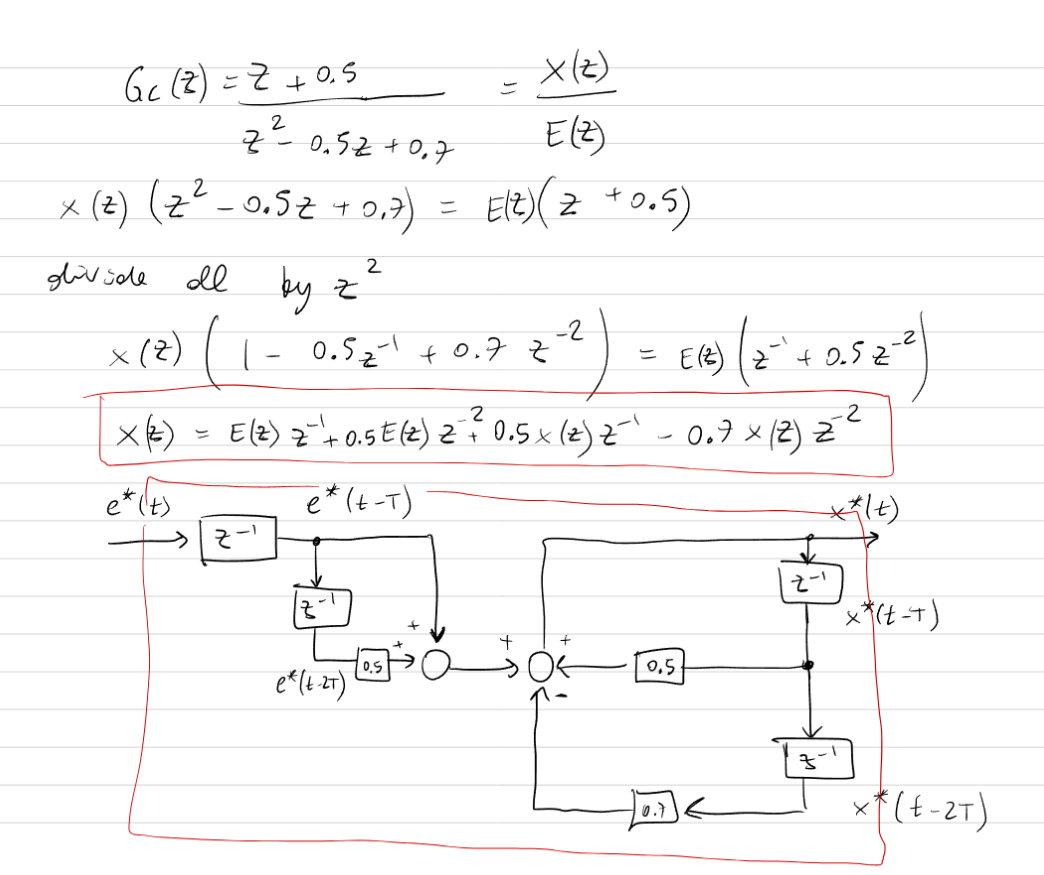 Gc(z) = z + 0.5 / z² - 0.5z + 0.7 = X(z) / E(z)
x(z) (z² - 0.5z + 0.7) = E(z)(z + 0.5)
divide all by z²
x(z) (1 - 0.5z⁻¹ + 0.7 z⁻²) = E(z) (z⁻¹ + 0.5 z⁻²)
x(z) = E(z) z⁻¹ + 0.5 E(z) z⁻² + 0.5 x(z) z⁻¹ - 0.7 x(z) z⁻²
e*(t) e*(t-T) x*(t)
z⁻¹
z⁻¹ z⁻¹
x*(t-T)
+ + + +
0.5 0.5
e*(t-2T)
-
z⁻¹
0.7 x*(t-2T)